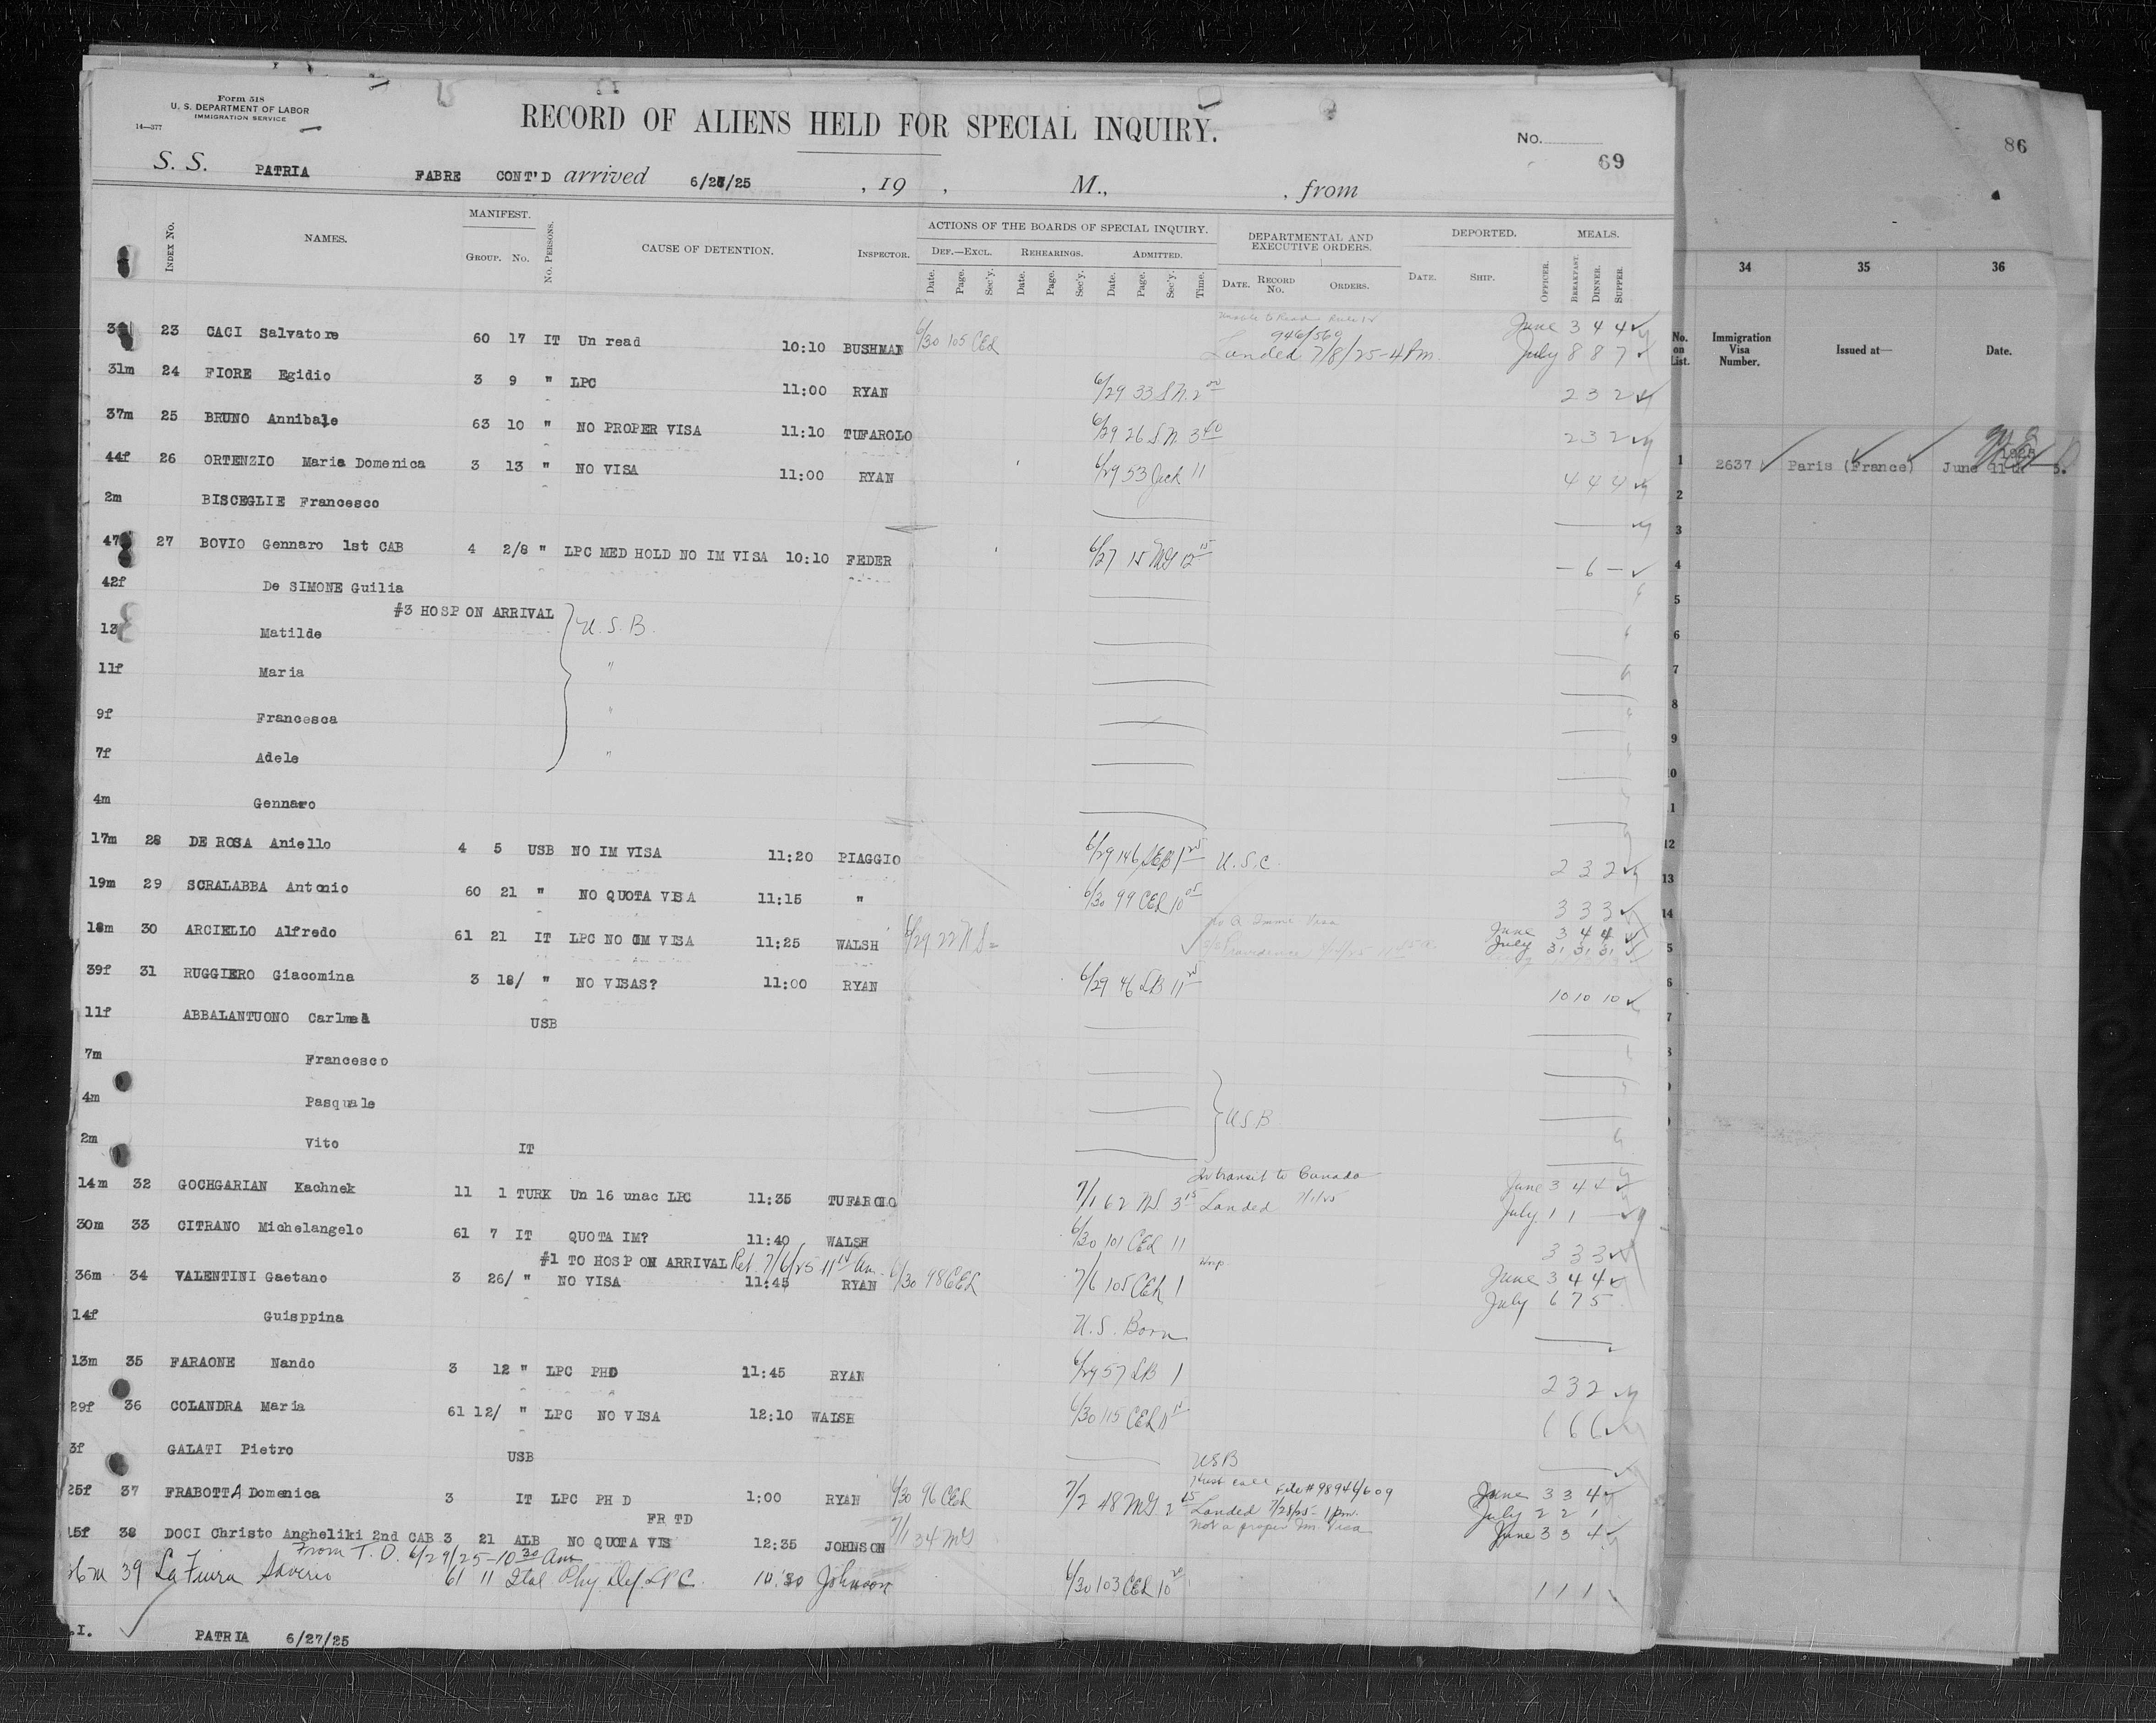 Form 518
U. S. DEPARTMENT OF LABOR
IMMIGRATION SERVICE
14—377
RECORD OF ALIENS HELD FOR SPECIAL INQUIRY.
No.
69
86
S. S. PATRIA FABRE CONT'D arrived 6/27/25 , 19 , M., , from
INDEX No. NAMES. MANIFEST. GROUP. No. No. PERSONS. CAUSE OF DETENTION. INSPECTOR. ACTIONS OF THE BOARDS OF SPECIAL INQUIRY. DEPARTMENTAL AND EXECUTIVE ORDERS. DEPORTED. MEALS.
DEF.—EXCL. REHEARINGS. ADMITTED.
Date. Page. Sec'y. Date. Page. Sec'y. Date. Page. Sec'y. Time. DATE. RECORD No. ORDERS. DATE. SHIP. OFFICER. BREAKFAST. DINNER. SUPPER.
34 35 36
No. on List. Immigration Visa Number. Issued at— Date.
1 2637 Paris (France) June 11
23 CACI Salvatore 60 17 IT Un read 10:10 BUSHMAN 6/30 105 CER 946/569 June 3 4 4
Landed 7/8/25-4 Pm. July 8 8 7
31m 24 FIORE Egidio 3 9 " LPC 11:00 RYAN 6/29 33 S.N. 2 00 2 3 2
37m 25 BRUNO Annibale 63 10 " NO PROPER VISA 11:10 TUFAROLO 6/29 26 S.N. 3 40 2 3 2
44f 26 ORTENZIO Maria Domenica 3 13 " NO VISA 11:00 RYAN 6/29 53 11 4 4 4
2m BISCEGLIE Francesco
47 27 BOVIO Gennaro 1st CAB 4 2/8 " LPC MED HOLD NO IM VISA 10:10 FEDER 6/27 15 MG 12 15 — 6 —
42f De SIMONE Guilia
#3 HOSP ON ARRIVAL
13 Matilde U.S.B.
11f Maria "
9f Francesca "
7f Adele "
4m Gennaro
17m 28 DE ROSA Aniello 4 5 USB NO IM VISA 11:20 PIAGGIO 6/29 146 SEB 1 25 U.S.C. 2 3 2
19m 29 SCRALABBA Antonio 60 21 " NO QUOTA VISA 11:15 " 6/30 99 CER 10 05 3 3 3
18m 30 ARCIELLO Alfredo 61 21 IT LPC NO IM VISA 11:25 WALSH 6/29 22 N.S. June 3 4 4
July 31 31 31
39f 31 RUGGIERO Giacomina 3 18/ " NO VISAS? 11:00 RYAN 6/29 46 LB 11 10 10 10
11f ABBALANTUONO Carlmea USB
7m Francesco
4m Pasquale
U.S.B
2m Vito IT
In transit to Canada
14m 32 GOCHGARIAN Kachnek 11 1 TURK Un 16 unac LPC 11:35 TUFAROLO 7/1 62 N.S. 3 15 Landed 7/1/25 June 3 4 4
July 1 1 —
30m 33 CITRANO Michelangelo 61 7 IT QUOTA IM? 11:40 WALSH 6/30 101 CER 11 3 3 3
#1 TO HOSP ON ARRIVAL Ret. 7/6/25 11 Am.
36m 34 VALENTINI Gaetano 3 26/ " NO VISA 11:45 RYAN 6/30 98 CER 7/6 105 CER 1 June 3 4 4
July 6 7 5
14f Guisppina U.S. Born
13m 35 FARAONE Nando 3 12 " LPC PHD 11:45 RYAN 6/29 57 LB 1 2 3 2
29f 36 COLANDRA Maria 61 12/ " LPC NO VISA 12:10 WALSH 6/30 115 CER 11 6 6
3f GALATI Pietro USB USB
File # 98944/609
25f 37 FRABOTTA Domenica 3 IT LPC PH D 1:00 RYAN 6/30 96 CER 7/2 48 MG 2 15 Landed 7/28/25 - 1 pm. June 3 3 4
July 2 2 1
FR TD
15f 38 DOCI Christo Angheliki 2nd CAB 3 21 ALB NO QUOTA VIS 12:35 JOHNSON 7/1 34 MG Not a proper Im. Visa June 3 3 4
From T.D. 6/29/25-10 30 Am
39 La Fiura Saverio 61 11 Ital Phy. Def. LPC. 10:30 Johnson 6/30 103 CER 10 20 1 1 1
.I. PATRIA 6/27/25